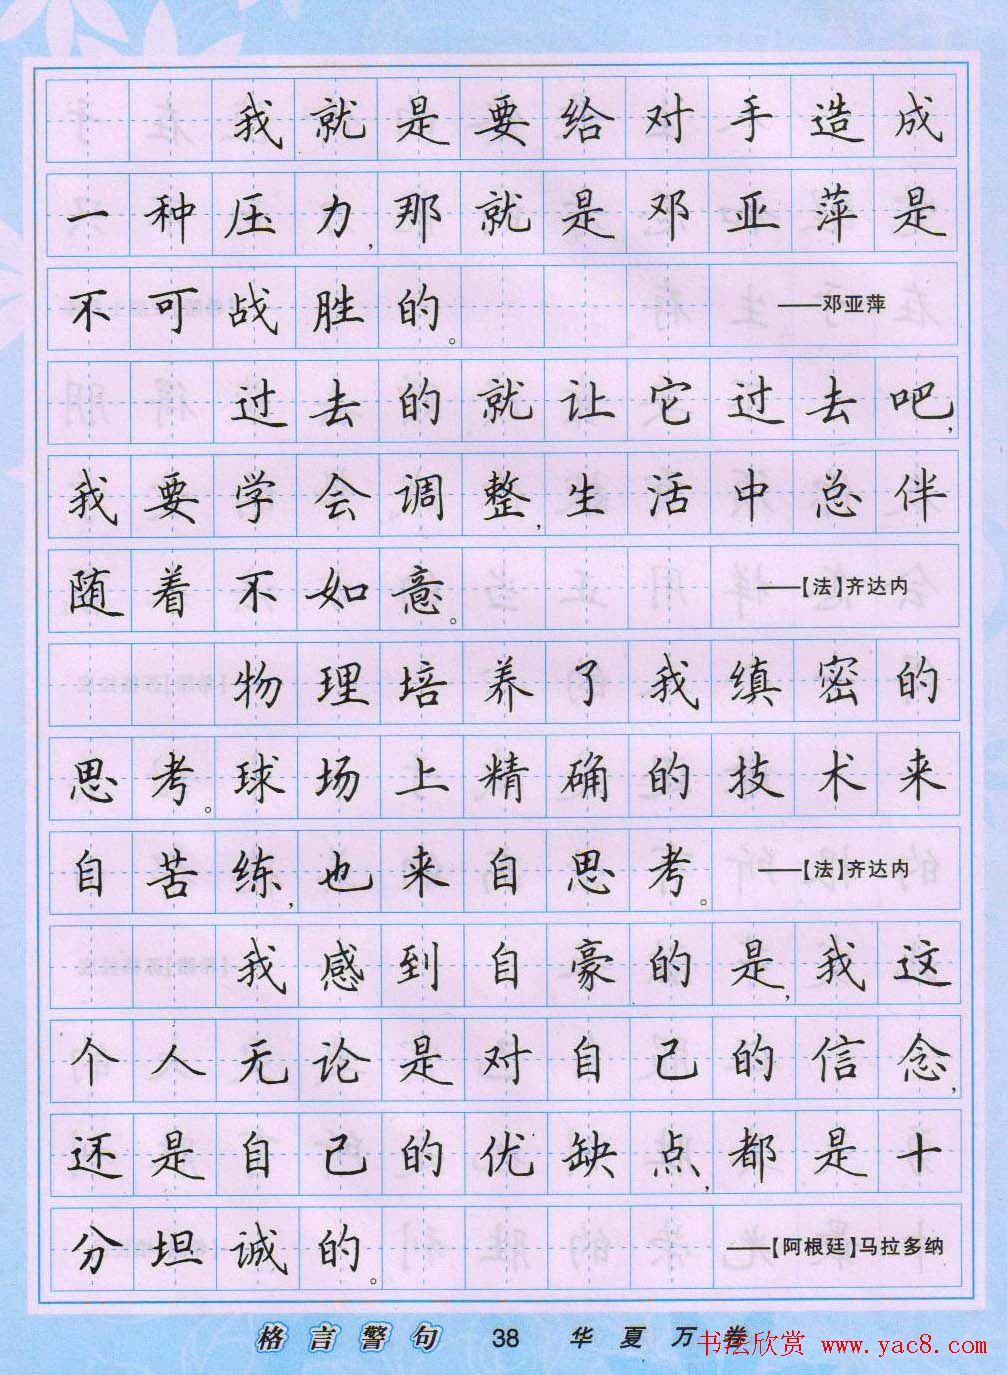 我就是要给对手造成
一种压力,那就是邓亚萍是
不可战胜的。 ——邓亚萍
过去的就让它过去吧,
我要学会调整,生活中总伴
随着不如意。 ——【法】齐达内
物理培养了我缜密的
思考。球场上精确的技术来
自苦练,也来自思考。 ——【法】齐达内
我感到自豪的是,我这
个人无论是对自己的信念,
还是自己的优缺点,都是十
分坦诚的。 ——【阿根廷】马拉多纳
格言警句 38 华夏万卷
书法欣赏 www.yac8.com